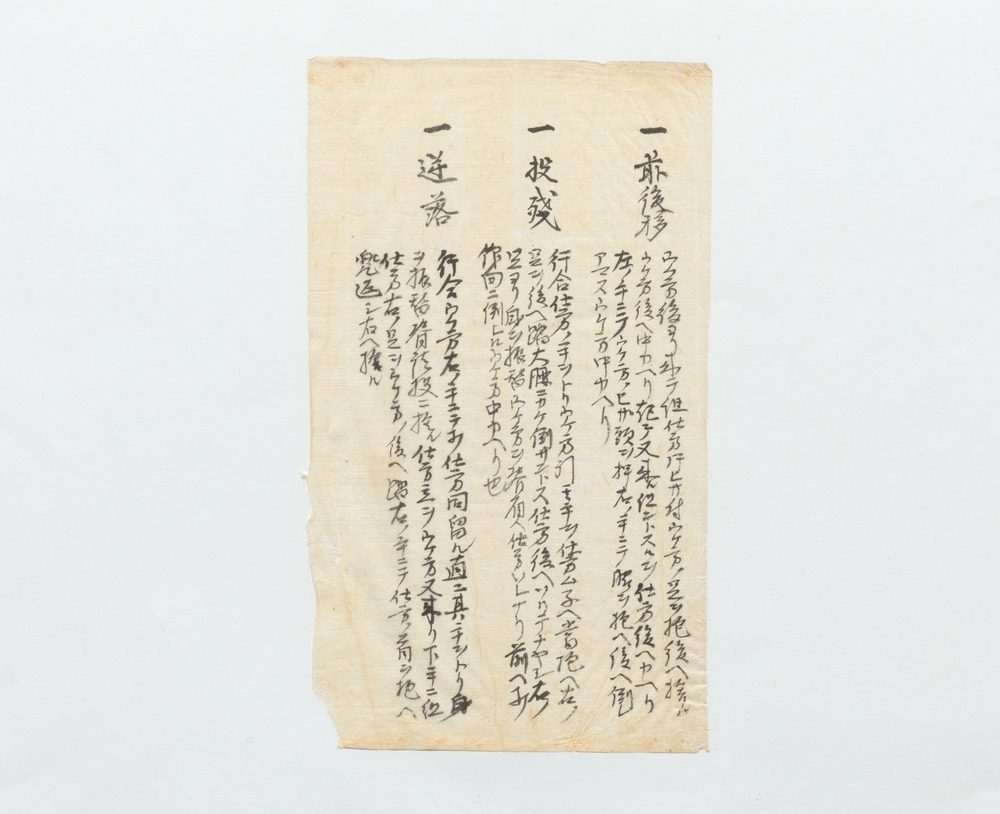 一 前後移
ウケ方後ヨリ来テ組仕方 ウケ方ノ足ヲ抱後ヘ捨ル
ウケ方後ヘ中カヘリ起テ又来組ントスルヲ仕方後ヘカヘリ
左ノ手ニテウケ方ノ 頭ヲ押右ノ手ニテ腰ヲ抱ヘ後ヘ倒
ウケ方中カヘリ
一 投残
行合仕方ノ手ヲトリウケ方引 手ヲ仕方 当抱ヘ右ノ
足ヲ後ヘ踏大腰ニカケ倒サントス仕方後ヘ 右ノ
足ヨリ身ヲ振替ウケ方ヲ 仕方 ヨリ前ヘ
作向ニ倒 ウケ方中カヘリ也
一 逆落
行合ウケ方右ノ手ニテ 仕方同留ル直ニ其手ヲトリ身
ヲ振替背負投ニ捨ル仕方立ヲウケ方又来リ下手ニ組
仕方右ノ足ヲウケ方ノ後ヘ踏右ノ手ニテ仕方ノ前ヲ抱ヘ
返シ右ヘ捨ル